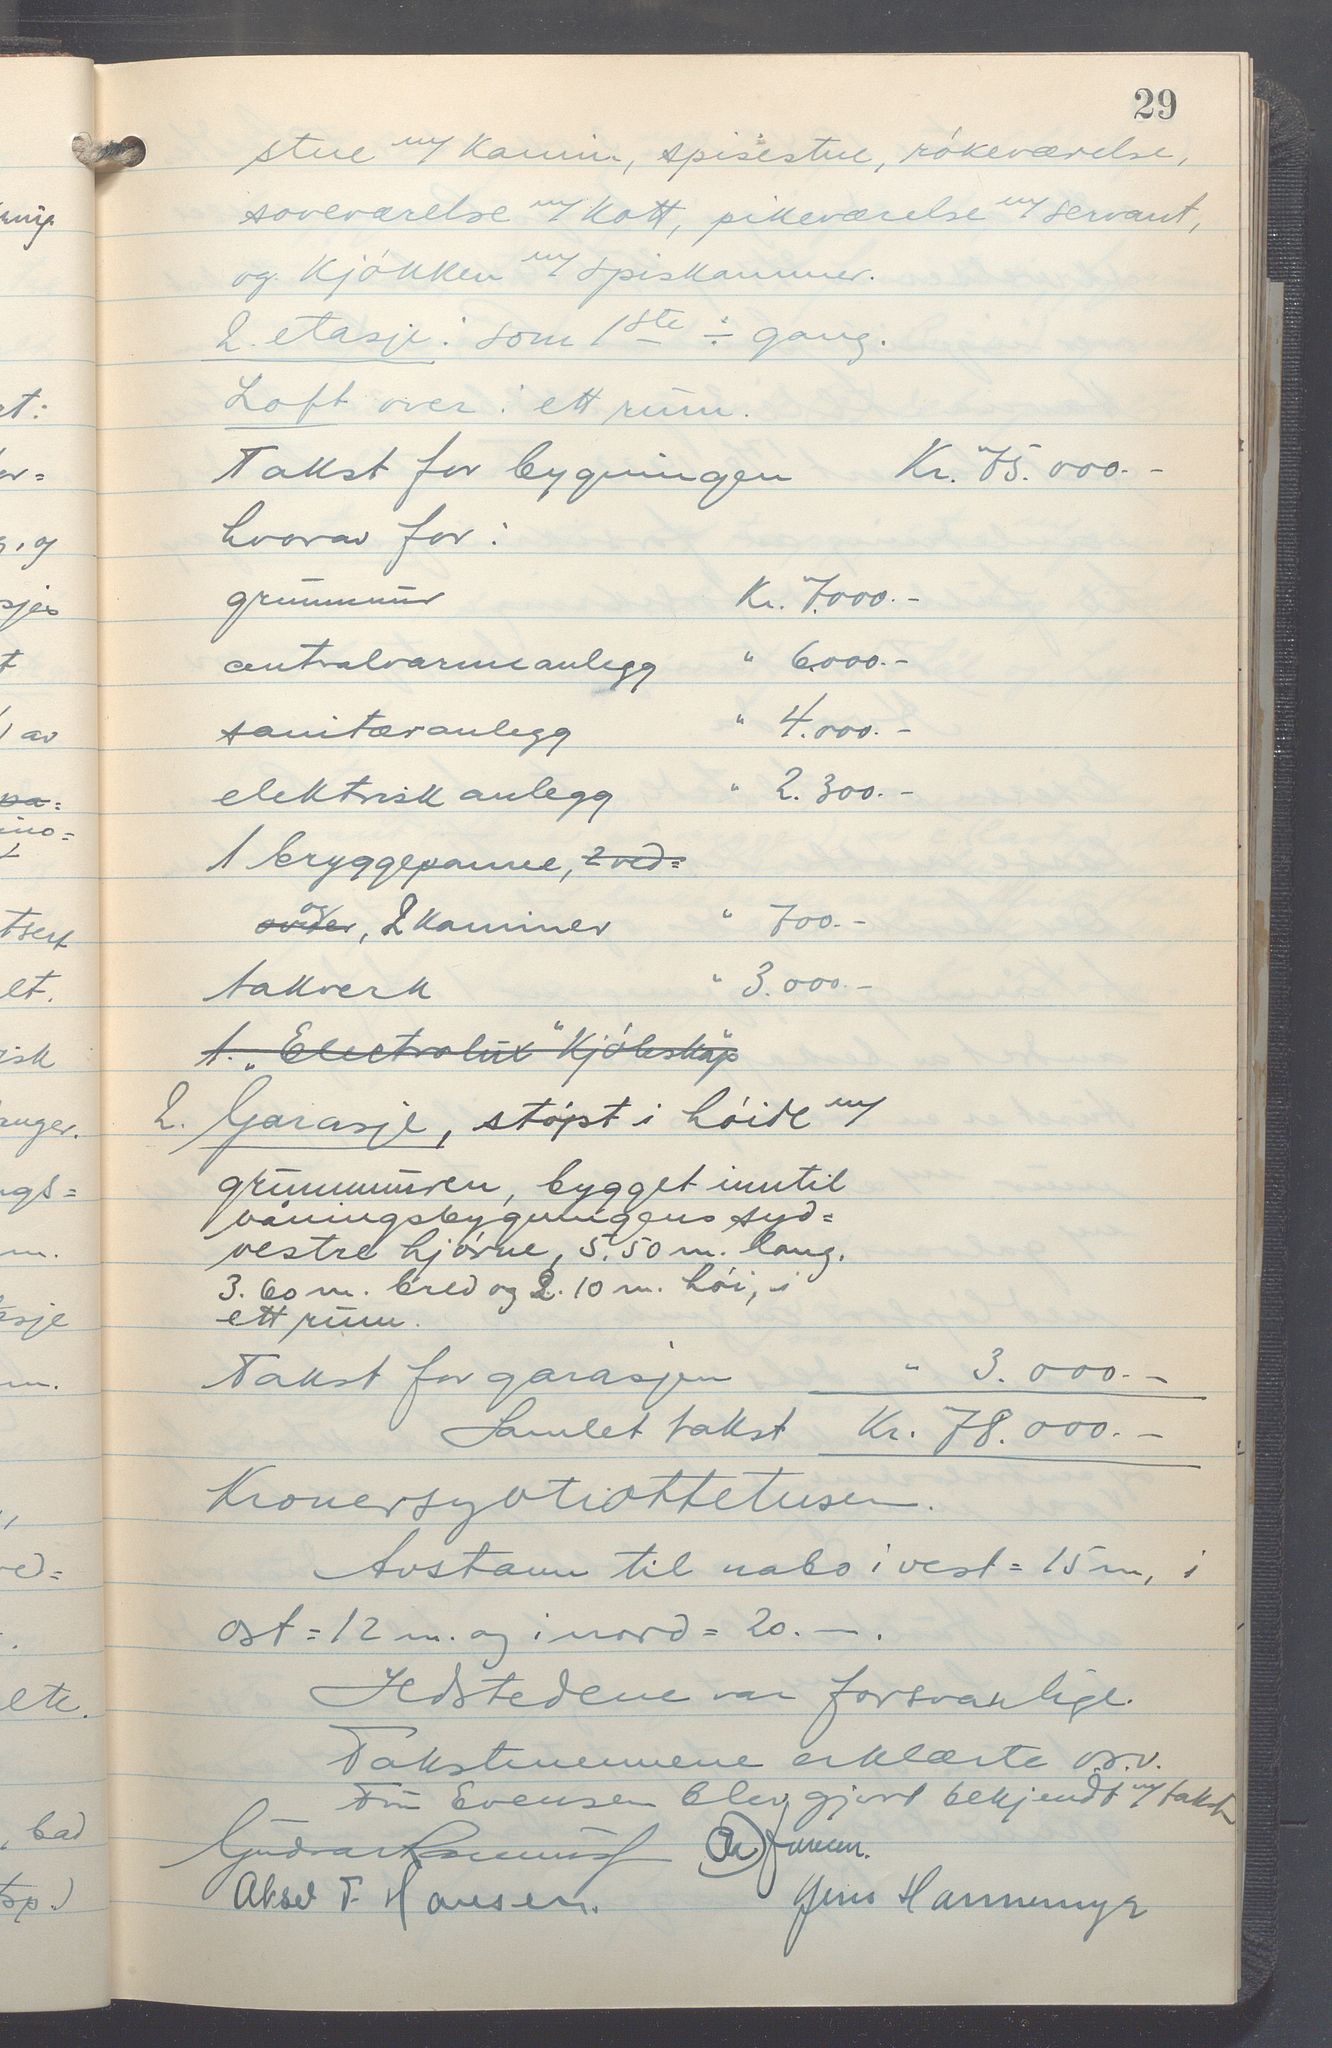 29
stue m/ kamin, spisestue, rökeværelse,
soveværelse m/ kott, pikeværelse m/ servant,
og kjökken m/ spiskammer.
2. etasje: som 1ste ÷ gang.
Loft over: ett rum.
Takst for bygningen Kr. 75.000.-
hvorav for:
grunnmur Kr. 7.000.-
centralvarmeanlegg " 6.000.-
sanitæranlegg " 4.000.-
elektrisk anlegg " 2.300.-
1 bryggepanne, 2 ved=
ovner, og 2 kaminer " 700.-
takverk " 3.000.-
1. "Electrolux" kjöleskap
2. Garasje, støpt i höide m/
grunnmuren, bygget inntil
våningsbygningens syd=
vestre hjörne, 5.50 m. lang.
3.60 m. bred og 2.10 m. höi, i
ett rum.
Takst for garasjen " 3.000.-
Samlet takst Kr. 78.000.-
Kronersyvtiottetusen.
Avstann til nabo i vest = 15 m, i
ost = 12 m. og i nord = 20.—.
Ildstedene var forsvarlige.
Takstmennene erklærte o.s.v.
Fru Evensen blev gjort bekjendt m/ takst
Aksel F. Hansen. Jens Hannemyr